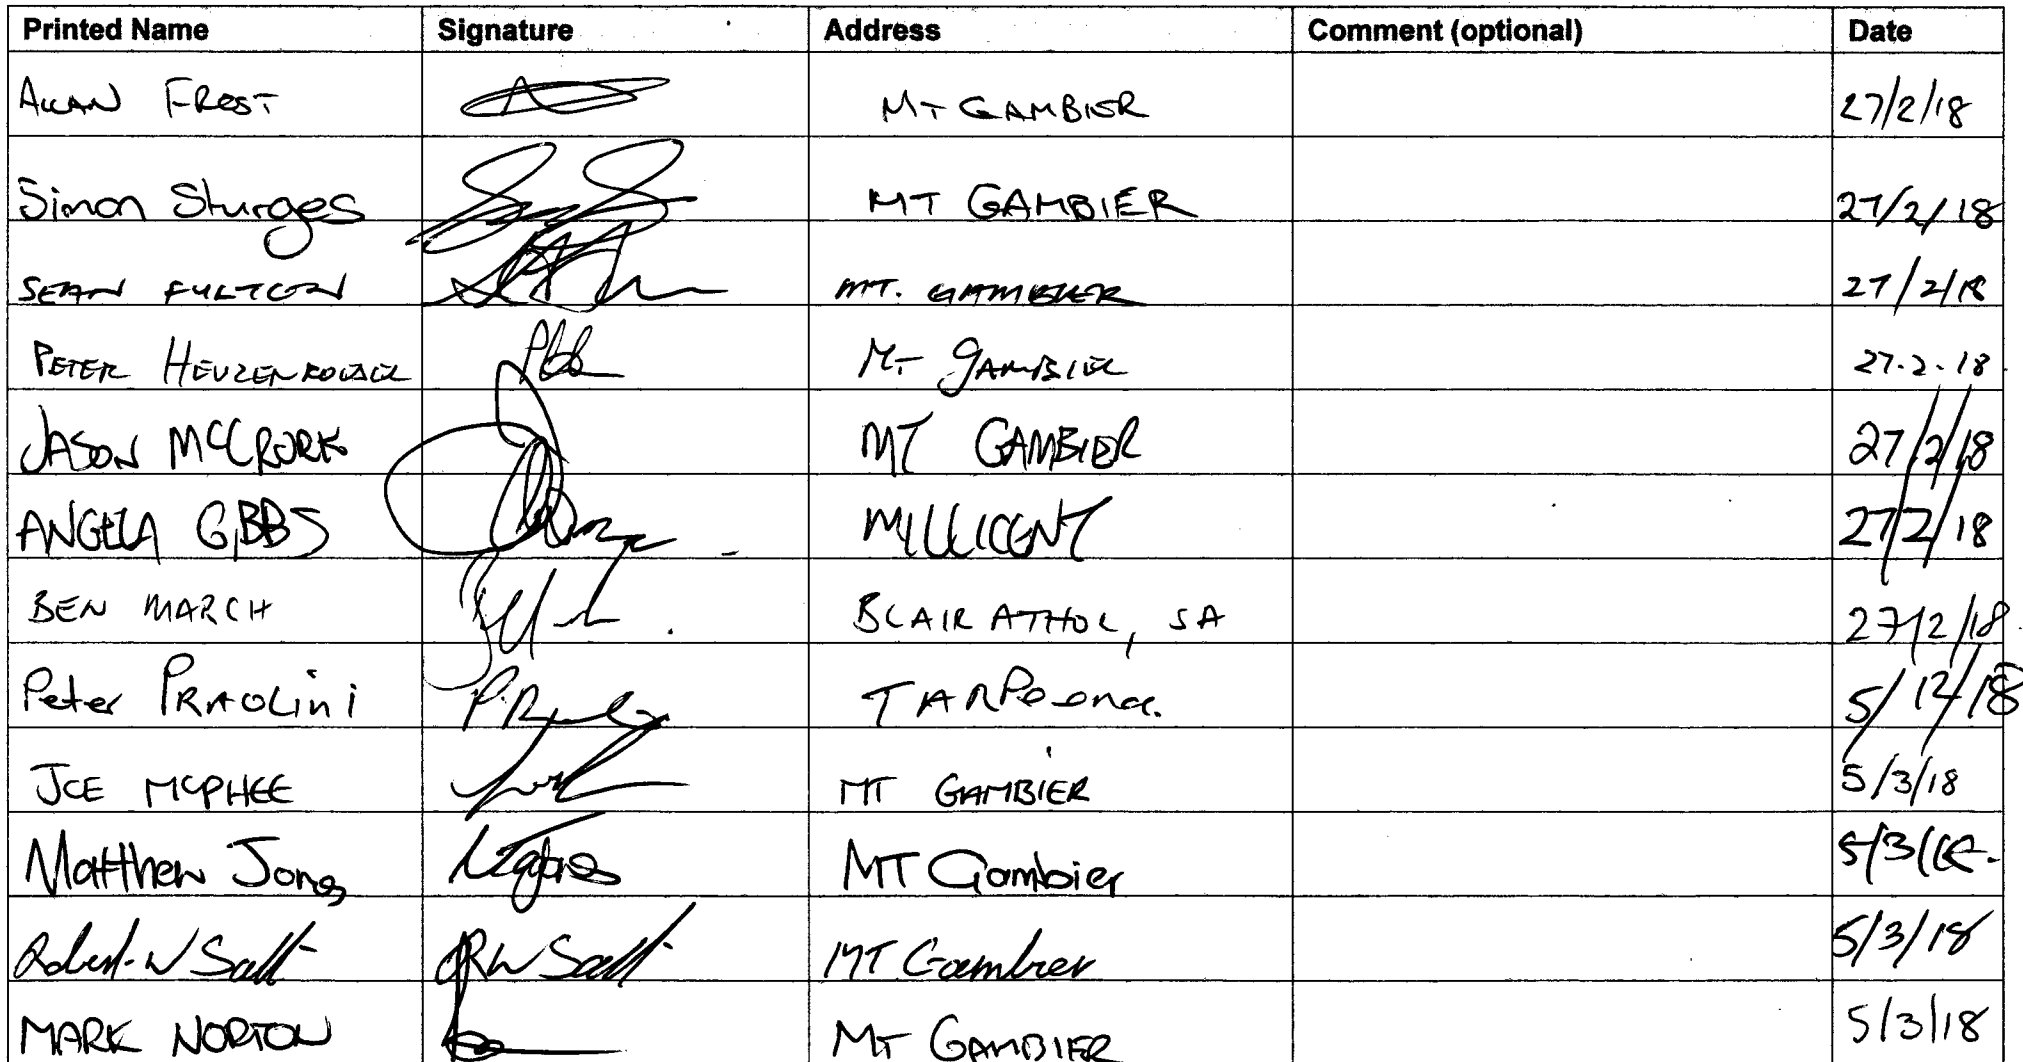 Printed Name Signature Address Comment (optional) Date
ALLAN FROST MT GAMBIER 27/2/18
Simon Sturges MT GAMBIER 27/2/18
SEAN FULTON MT. GAMBIER 27/2/18
PETER MT GAMBIER 27.2.18
JASON MCCRORK MT GAMBIER 27/2/18
ANGELA GIBBS MILLICENT 27/2/18
BEN MARCH BLAIR ATHOL, SA 27/2/18
Peter PRAOLini TARPeena. 5/12/18
JOE MCPHEE MT GAMBIER 5/3/18
Matthew Jones MT Gambier
Robert W Salt RW Salt MT Gambier 5/3/18
MARK NORTON MT GAMBIER 5/3/18